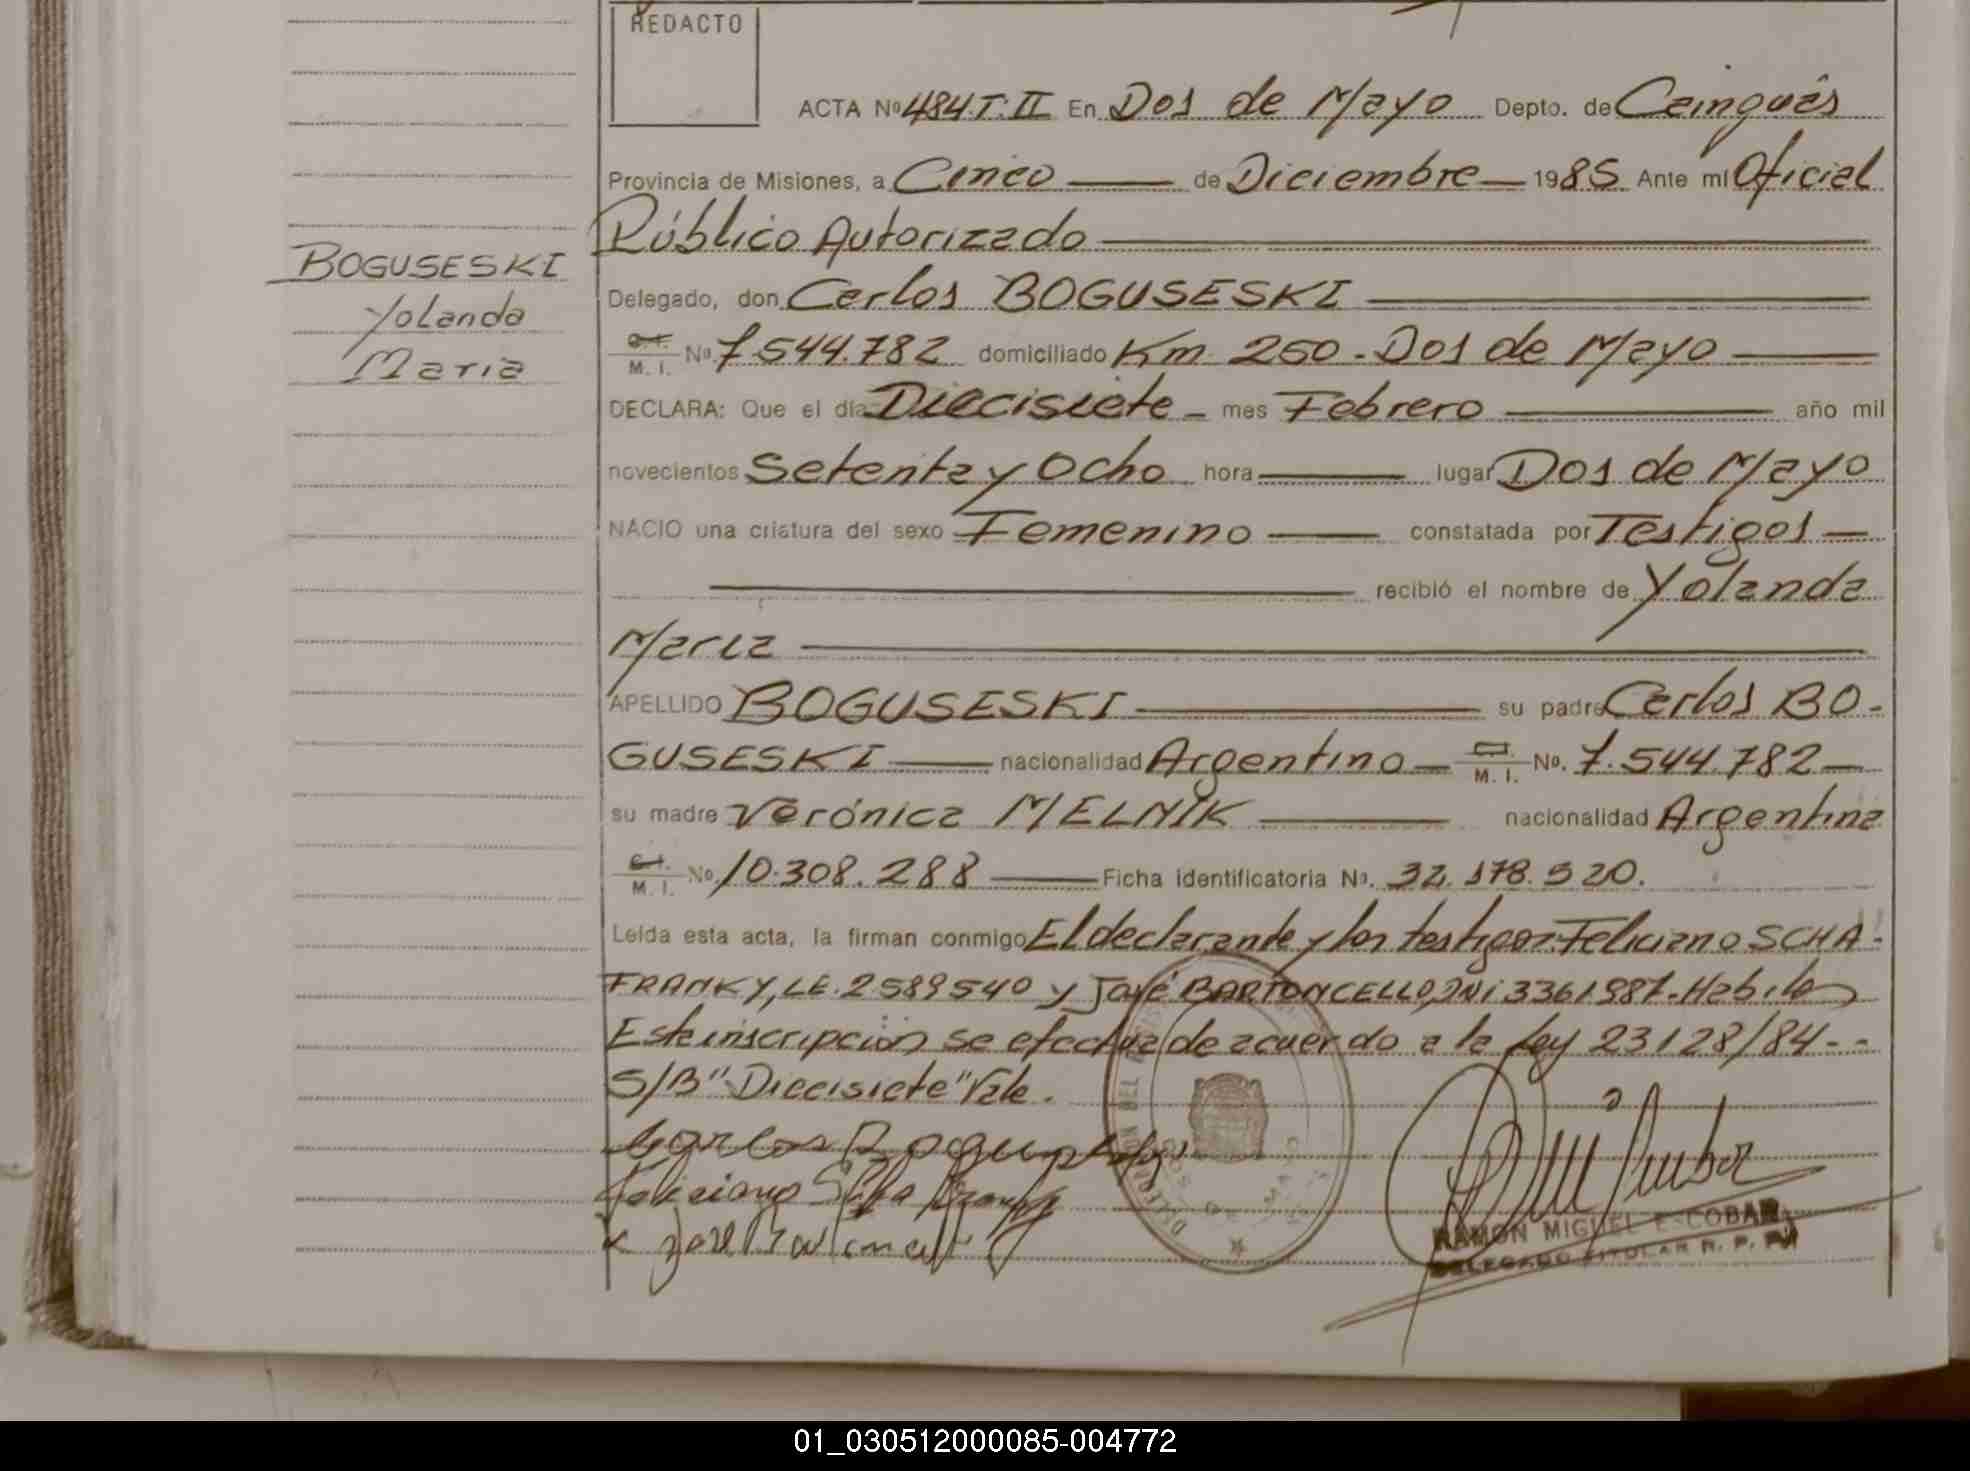 REDACTO
ACTA Nº 484.T.II En Dos de Mayo Depto. de Cainguás
Provincia de Misiones, a Cinco de Diciembre 1985 Ante mí Oficial
Público Autorizado
BOGUSESKI
Yolanda
Maria
Delegado, don Carlos BOGUSESKI
C.I. M. I. Nº 7.544.782 domiciliado Km. 250 - Dos de Mayo
DECLARA: Que el día Diecisiete mes Febrero año mil
novecientos Setenta y Ocho hora lugar Dos de Mayo
NACIO una criatura del sexo Femenino constatada por Testigos
recibió el nombre de Yolanda
Maria
APELLIDO BOGUSESKI su padre Carlos BO-
GUSESKI nacionalidad Argentino M. I. Nº. 7.544.782
su madre Verónica MELNIK nacionalidad Argentina
C.I. M. I. Nº 10.308.288 Ficha identificatoria Nº. 32.178.520.
Leida esta acta, la firman conmigo El declarante y los testigos: Feliciano SCHA-
FRANKY, LE. 2589540 y José BARTONCELLO, DNI 3361987. Habiles
Este inscripción se efectua de acuerdo a la Ley 23128/84--
S/B "Diecisiete" Vale.
Carlos
Feliciano
RAMON MIGUEL ESCOBAR
DELEGADO TITULAR R. P. P.
01_030512000085-004772